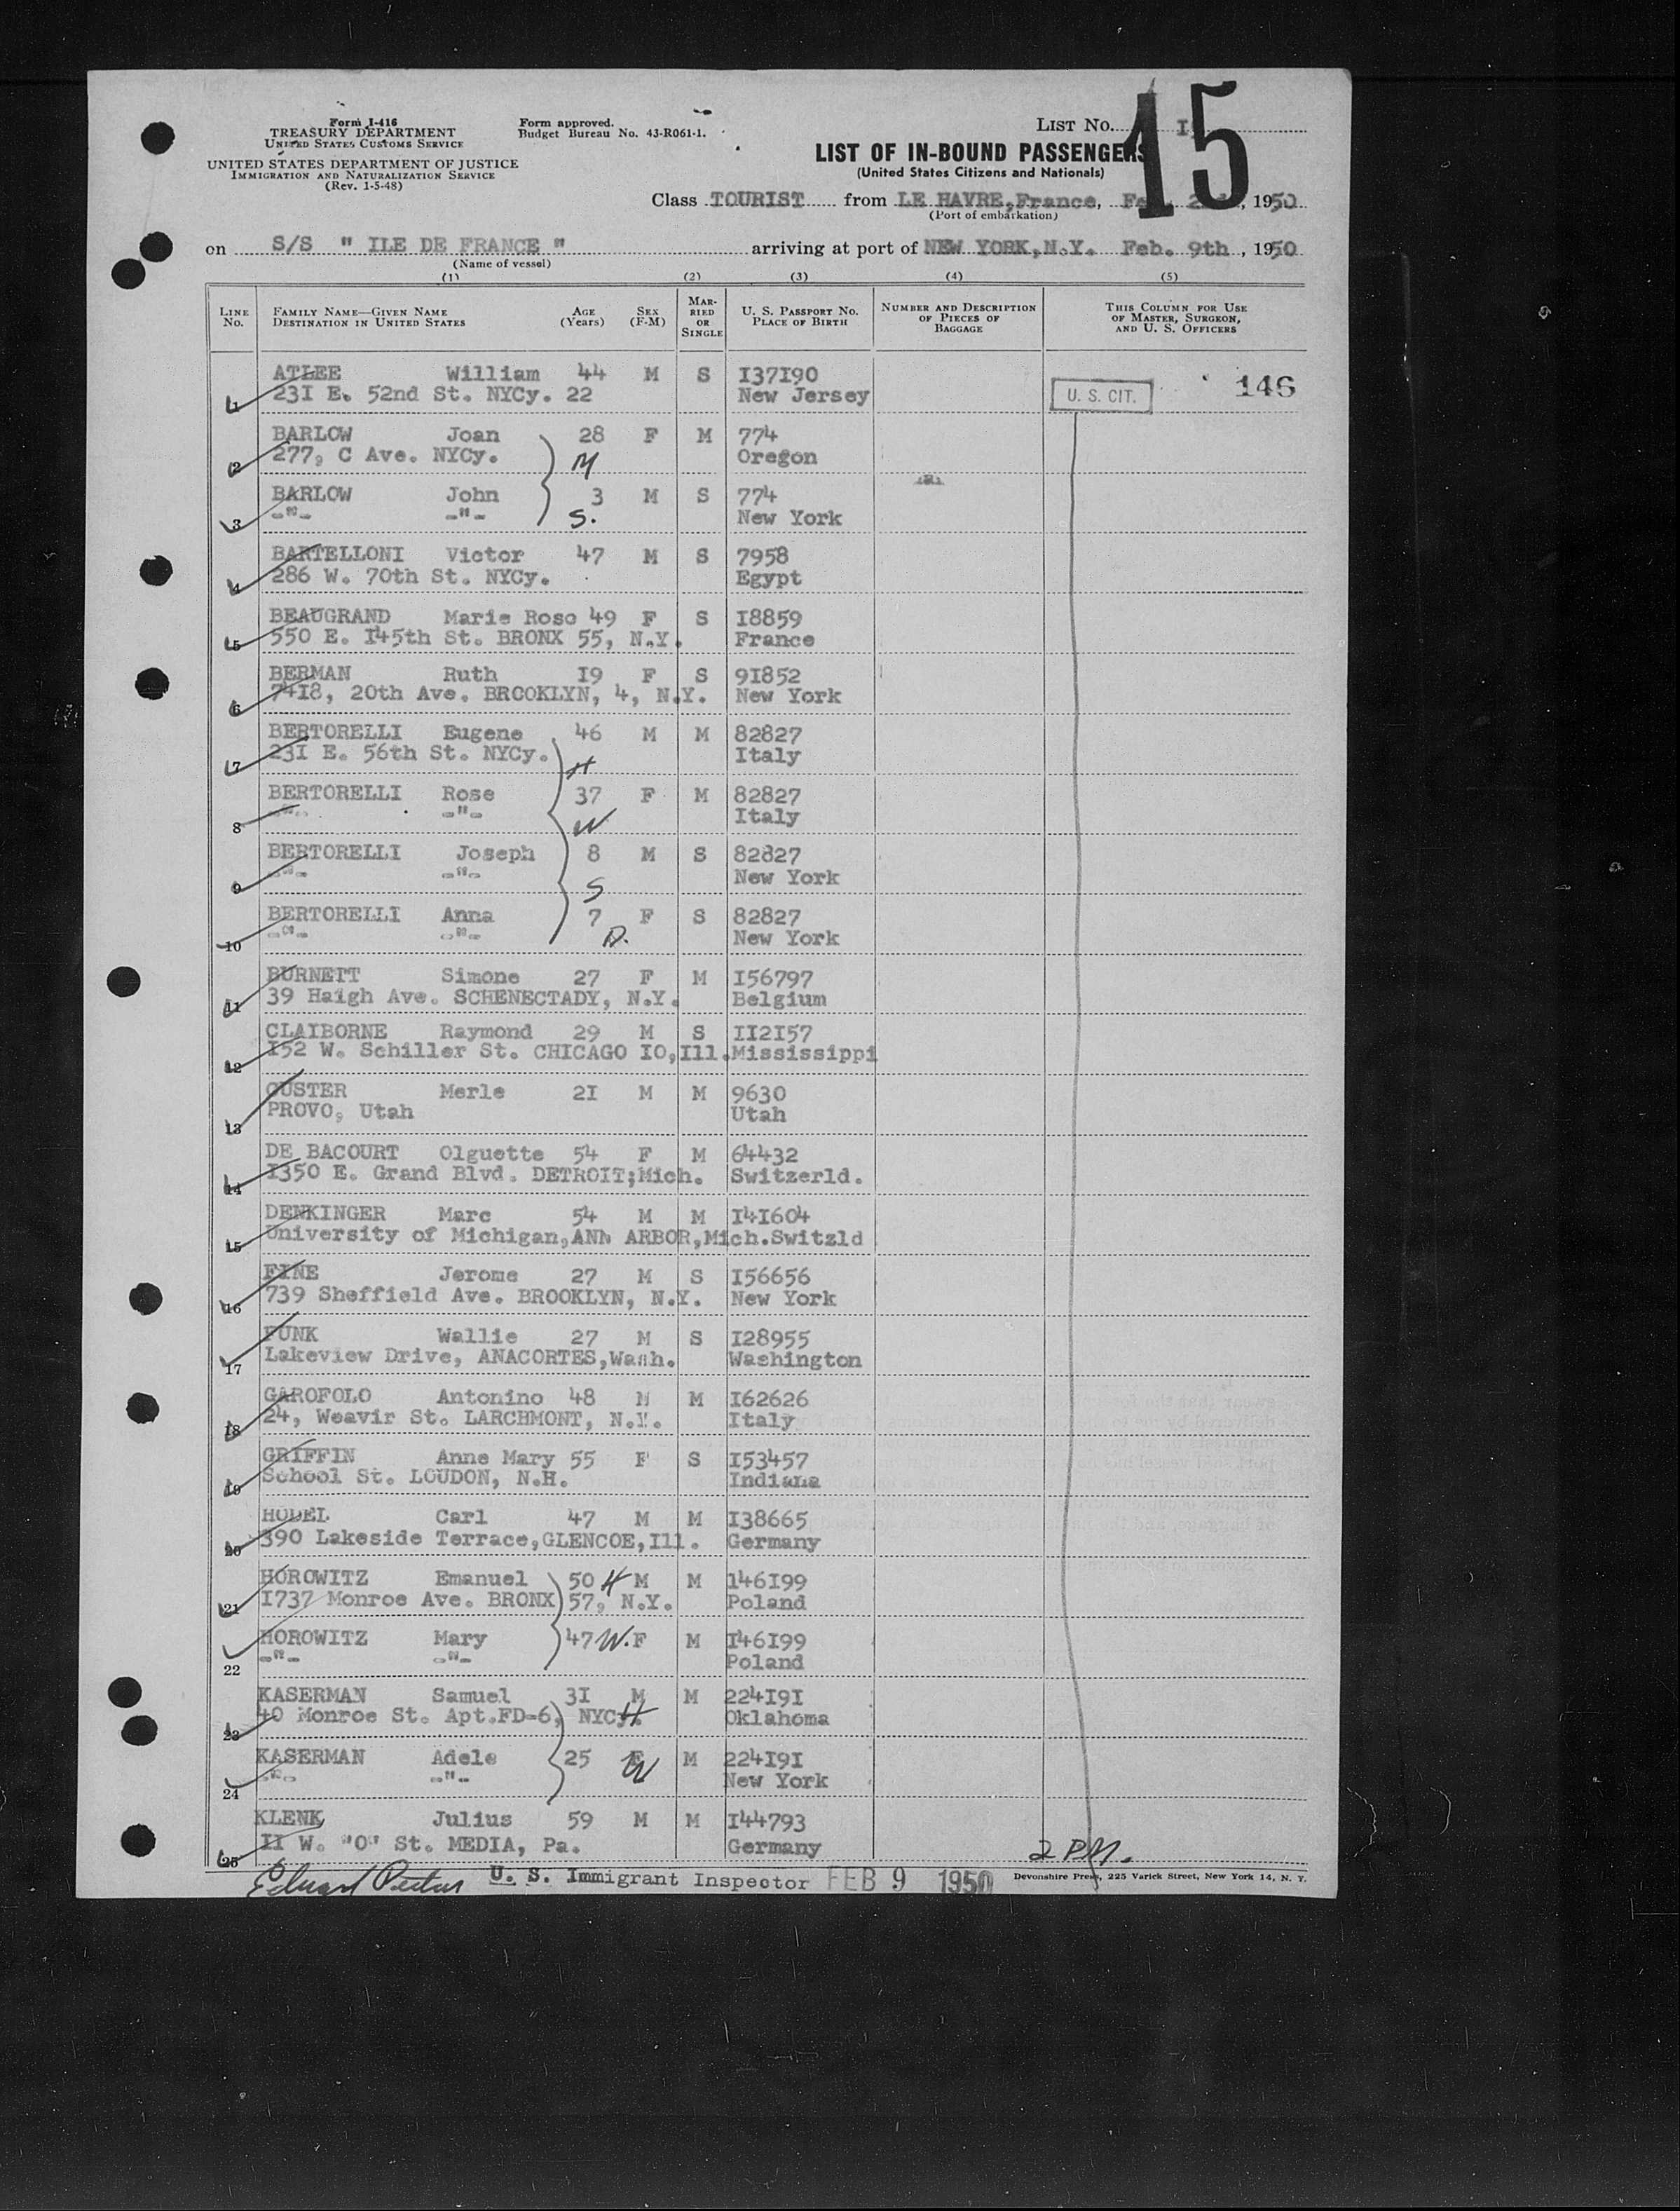 Form I-416
TREASURY DEPARTMENT
UNITED STATES CUSTOMS SERVICE
UNITED STATES DEPARTMENT OF JUSTICE
IMMIGRATION AND NATURALIZATION SERVICE
(Rev. 1-5-48)
Form approved.
Budget Bureau No. 43-R061-1.
LIST No.
15
LIST OF IN-BOUND PASSENGERS
(United States Citizens and Nationals)
Class TOURIST from LE HAVRE, France, , 1950
(Port of embarkation)
on S/S " ILE DE FRANCE " arriving at port of NEW YORK, N.Y. Feb. 9th , 1950
(Name of vessel)
(1) (2) (3) (4) (5)
LINE No. FAMILY NAME—GIVEN NAME DESTINATION IN UNITED STATES AGE (Years) SEX (F-M) MARRIED OR SINGLE U. S. PASSPORT No. PLACE OF BIRTH NUMBER AND DESCRIPTION OF PIECES OF BAGGAGE THIS COLUMN FOR USE OF MASTER, SURGEON, AND U. S. OFFICERS
ATLEE William 44 M S I37I90 146
1 23I E. 52nd St. NYCy. 22 New Jersey U. S. CIT.
BARLOW Joan 28 F M 774
2 277, C Ave. NYCy. M Oregon
BARLOW John 3 M S 774
3 -"- -"- S. New York
BARTELLONI Victor 47 M S 7958
4 286 W. 70th St. NYCy. Egypt
BEAUGRAND Marie Rose 49 F S I8859
5 550 E. I45th St. BRONX 55, N.Y. France
BERMAN Ruth I9 F S 9I852
6 74I8, 20th Ave. BROOKLYN, 4, N.Y. New York
BERTORELLI Eugene 46 M M 82827
7 23I E. 56th St. NYCy. H Italy
BERTORELLI Rose 37 F M 82827
8 -"- -"- W Italy
BERTORELLI Joseph 8 M S 82827
9 -"- -"- S New York
BERTORELLI Anna 7 F S 82827
10 -"- -"- D. New York
BURNETT Simone 27 F M I56797
11 39 Haigh Ave. SCHENECTADY, N.Y. Belgium
CLAIBORNE Raymond 29 M S II2I57
12 I52 W. Schiller St. CHICAGO IO, Ill. Mississippi
CUSTER Merle 2I M M 9630
13 PROVO, Utah Utah
DE BACOURT Olguette 54 F M 64432
14 I350 E. Grand Blvd. DETROIT;Mich. Switzerld.
DENKINGER Marc 54 M M I4I604
15 University of Michigan,ANN ARBOR,Mich. Switzld
FINE Jerome 27 M S I56656
16 739 Sheffield Ave. BROOKLYN, N.Y. New York
FUNK Wallie 27 M S I28955
17 Lakeview Drive, ANACORTES,Wash. Washington
GAROFOLO Antonino 48 M M I62626
18 24, Weavir St. LARCHMONT, N.Y. Italy
GRIFFIN Anne Mary 55 F S I53457
19 School St. LOUDON, N.H. Indiana
HODEL Carl 47 M M I38665
20 390 Lakeside Terrace,GLENCOE,Ill. Germany
HOROWITZ Emanuel 50 H M M I46I99
21 I737 Monroe Ave. BRONX 57, N.Y. Poland
HOROWITZ Mary 47 W. F M I46I99
22 -"- -"- Poland
KASERMAN Samuel 3I M M 224I9I
23 40 Monroe St. Apt.FD-6, NYCy. H Oklahoma
KASERMAN Adele 25 F W M 224I9I
24 -"- -"- New York
KLENK Julius 59 M M I44793
25 II W. "O" St. MEDIA, Pa. Germany 2 PM.
U. S. Immigrant Inspector FEB 9 1950 Devonshire Press, 225 Varick Street, New York 14, N. Y.